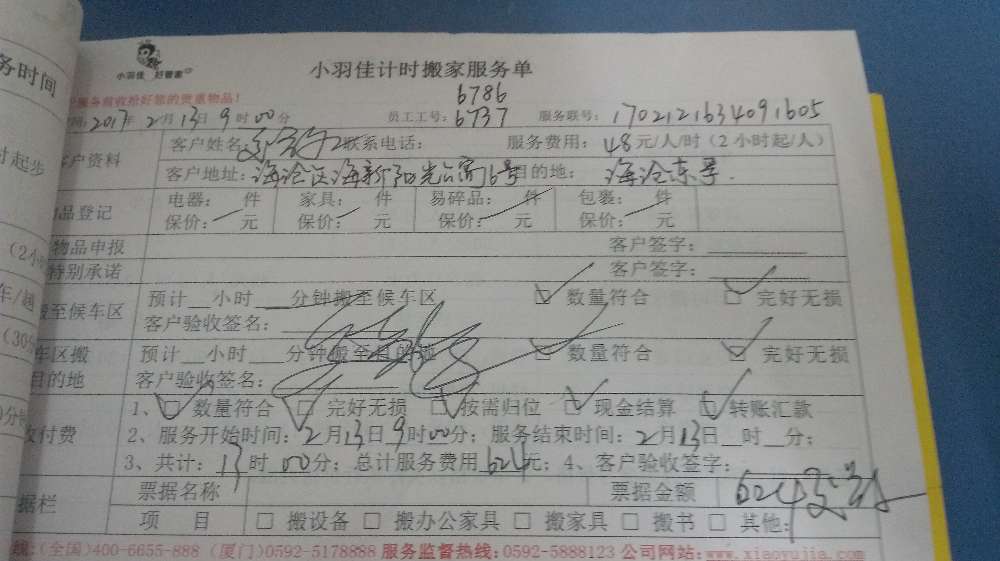 务时间
小羽佳 好管家
小羽佳计时搬家服务单
服务前收拾好您的贵重物品!
6786
间: 2017年2月13日9时00分 员工工号: 6737 服务联号: 1702121634091605
时起步
客户资料
客户姓名: 联系电话: 服务费用: 48元/人/时(2小时起/人)
客户地址: 海沧区海新阳光公寓16号 目的地: 海沧东孚.
物品登记
电器: 件 家具: 件 易碎品: 件 包裹: 件
保价: 元 保价: 元 保价: 元 保价: 元
(2小时
物品申报 客户签字:
特别承诺 客户签字:
车/趟
搬至候车区
预计__小时__分钟搬至候车区 数量符合 完好无损
客户验收签名:
(30分
车区搬
目的地
预计__小时__分钟搬至目的地 数量符合 完好无损
客户验收签名:
0分钟
收付费
1、 数量符合 完好无损 按需归位 现金结算 转账汇款
2、服务开始时间: 2月13日9时00分; 服务结束时间: 2月13日__时__分;
3、共计: 13时00分; 总计服务费用624元; 4、客户验收签字:
据栏
票据名称 票据金额 624
项 目 □ 搬设备 □ 搬办公家具 □ 搬家具 □ 搬书 □ 其他:
线:(全国)400-6655-888 (厦门)0592-5178888 服务监督热线:0592-5888123 公司网站:www.xiaoyujia.com